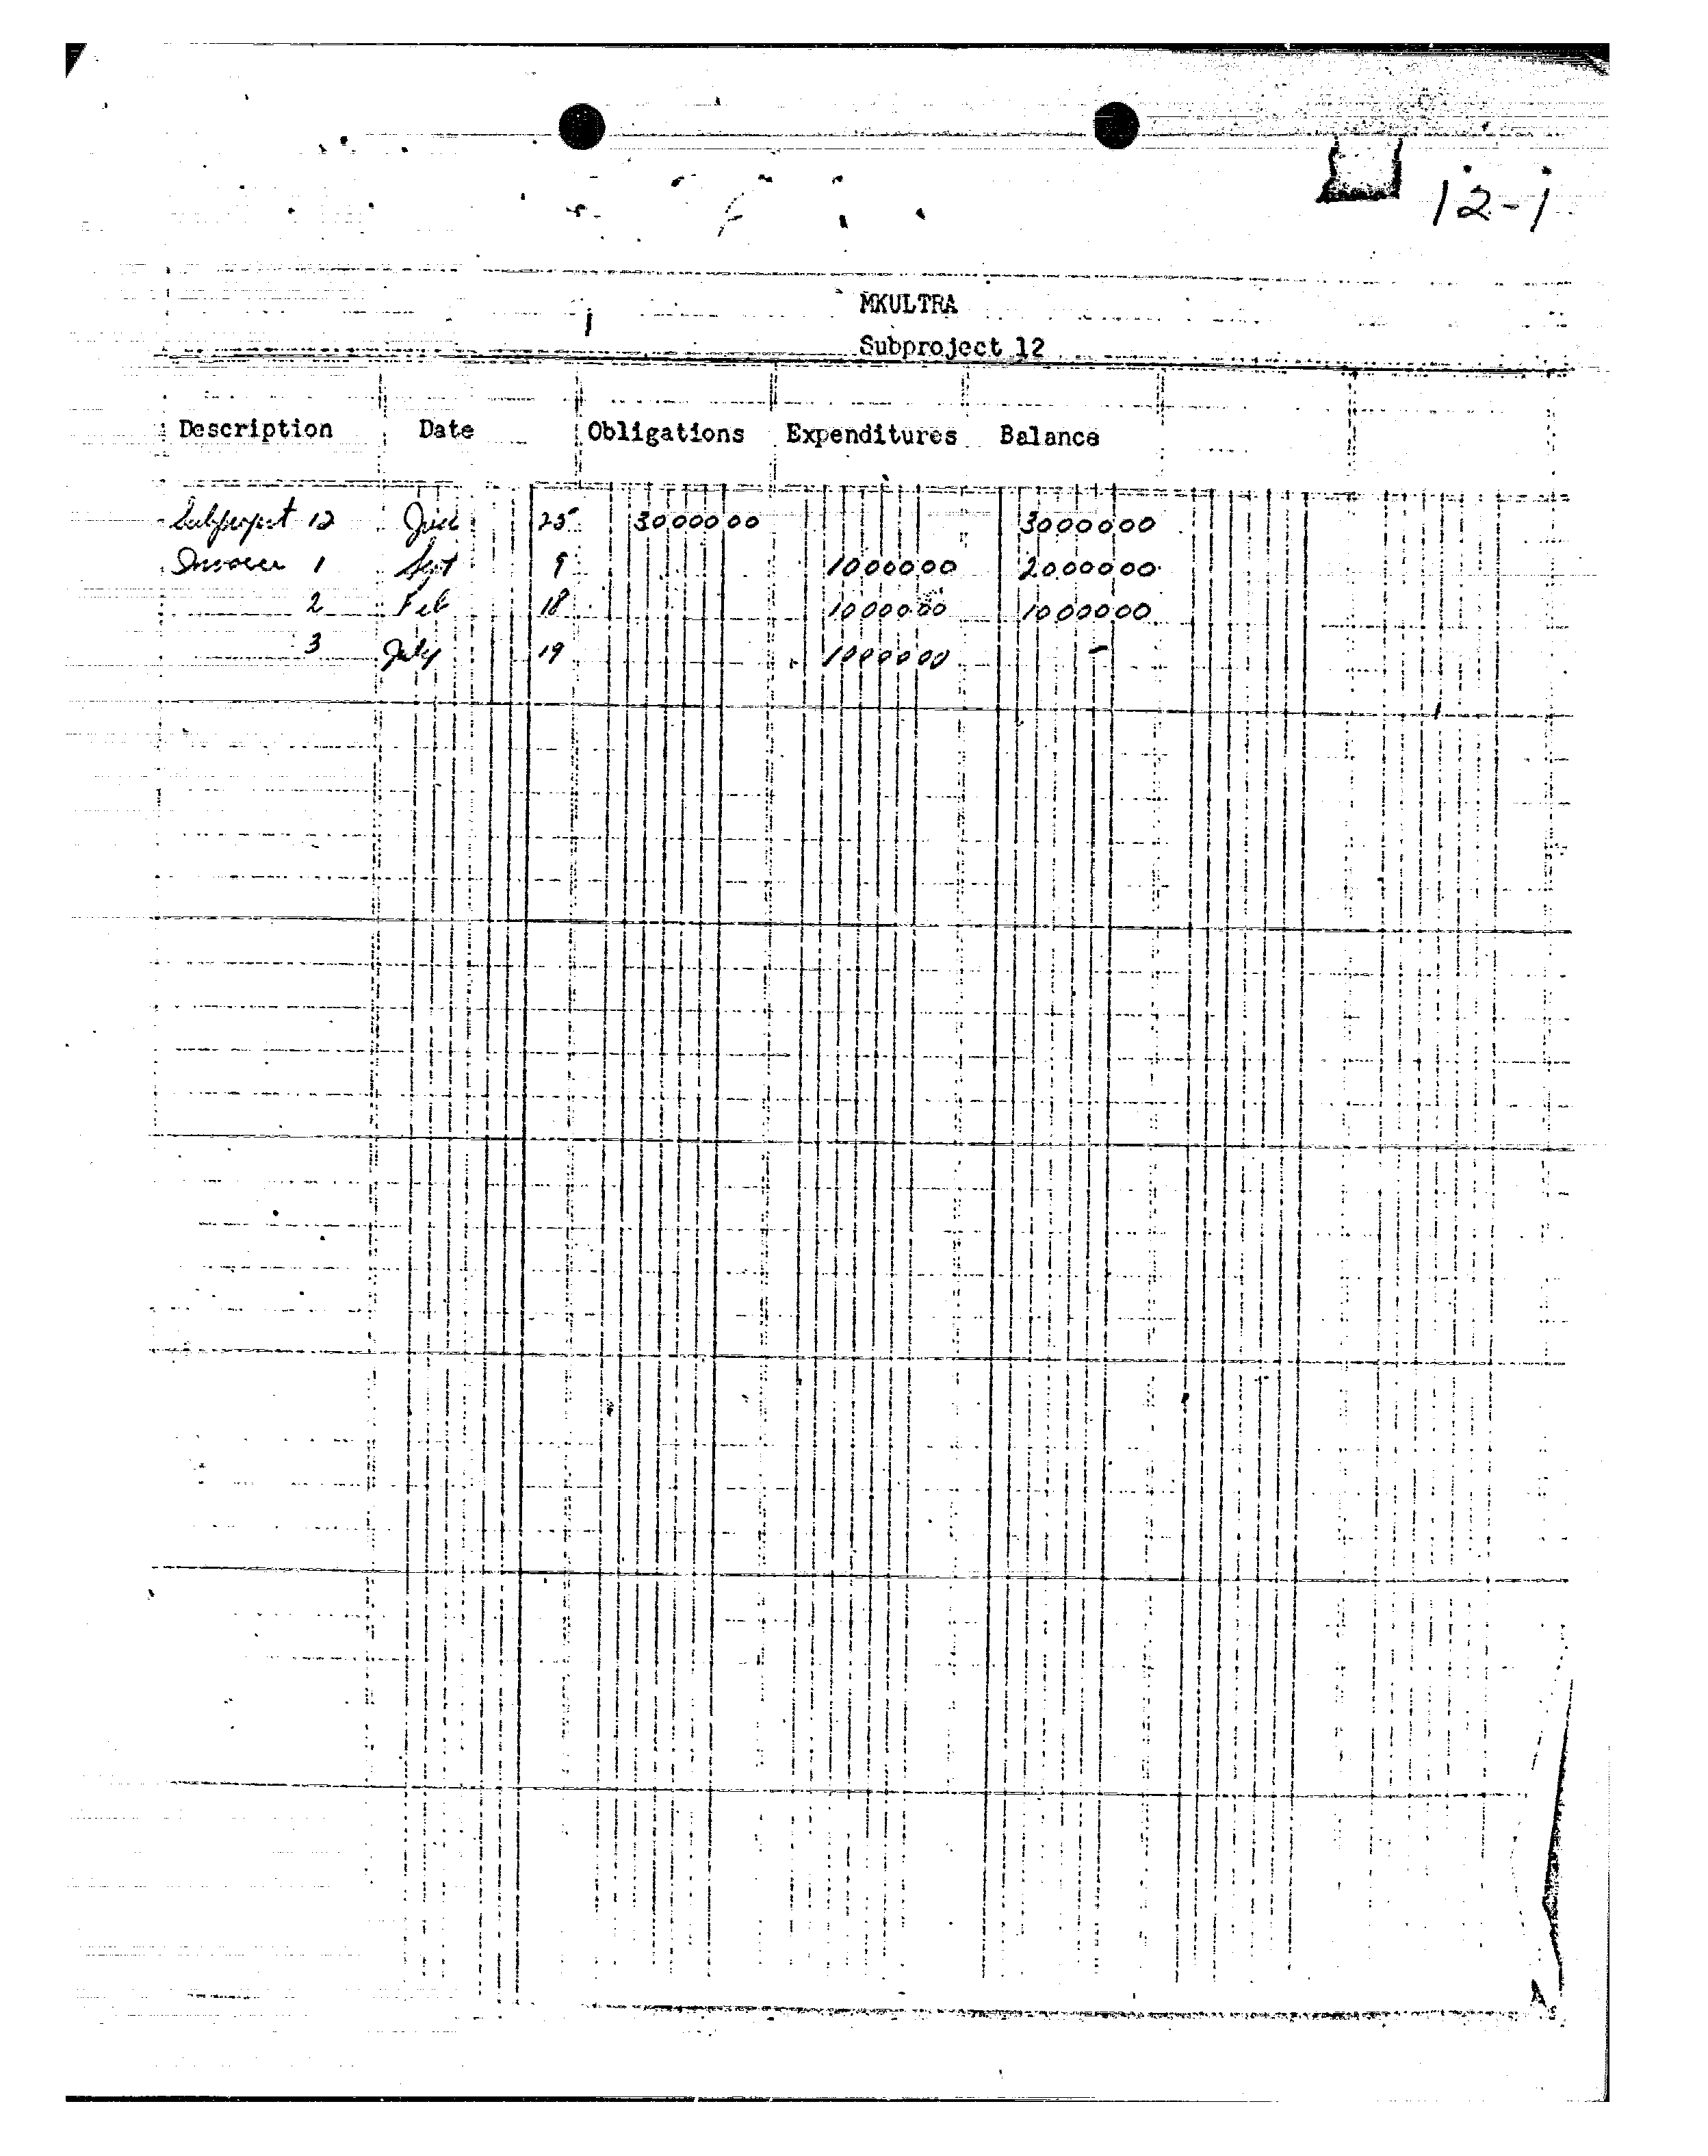 12-1
MKULTRA
Subproject 12
Description Date Obligations Expenditures Balance
Subproject 12 June 25 30000 00 30000 00
Invoice 1 Sept 9 10000 00 20000 00
2 Feb 18 10000 00 10000 00
3 July 19 10000 00 -